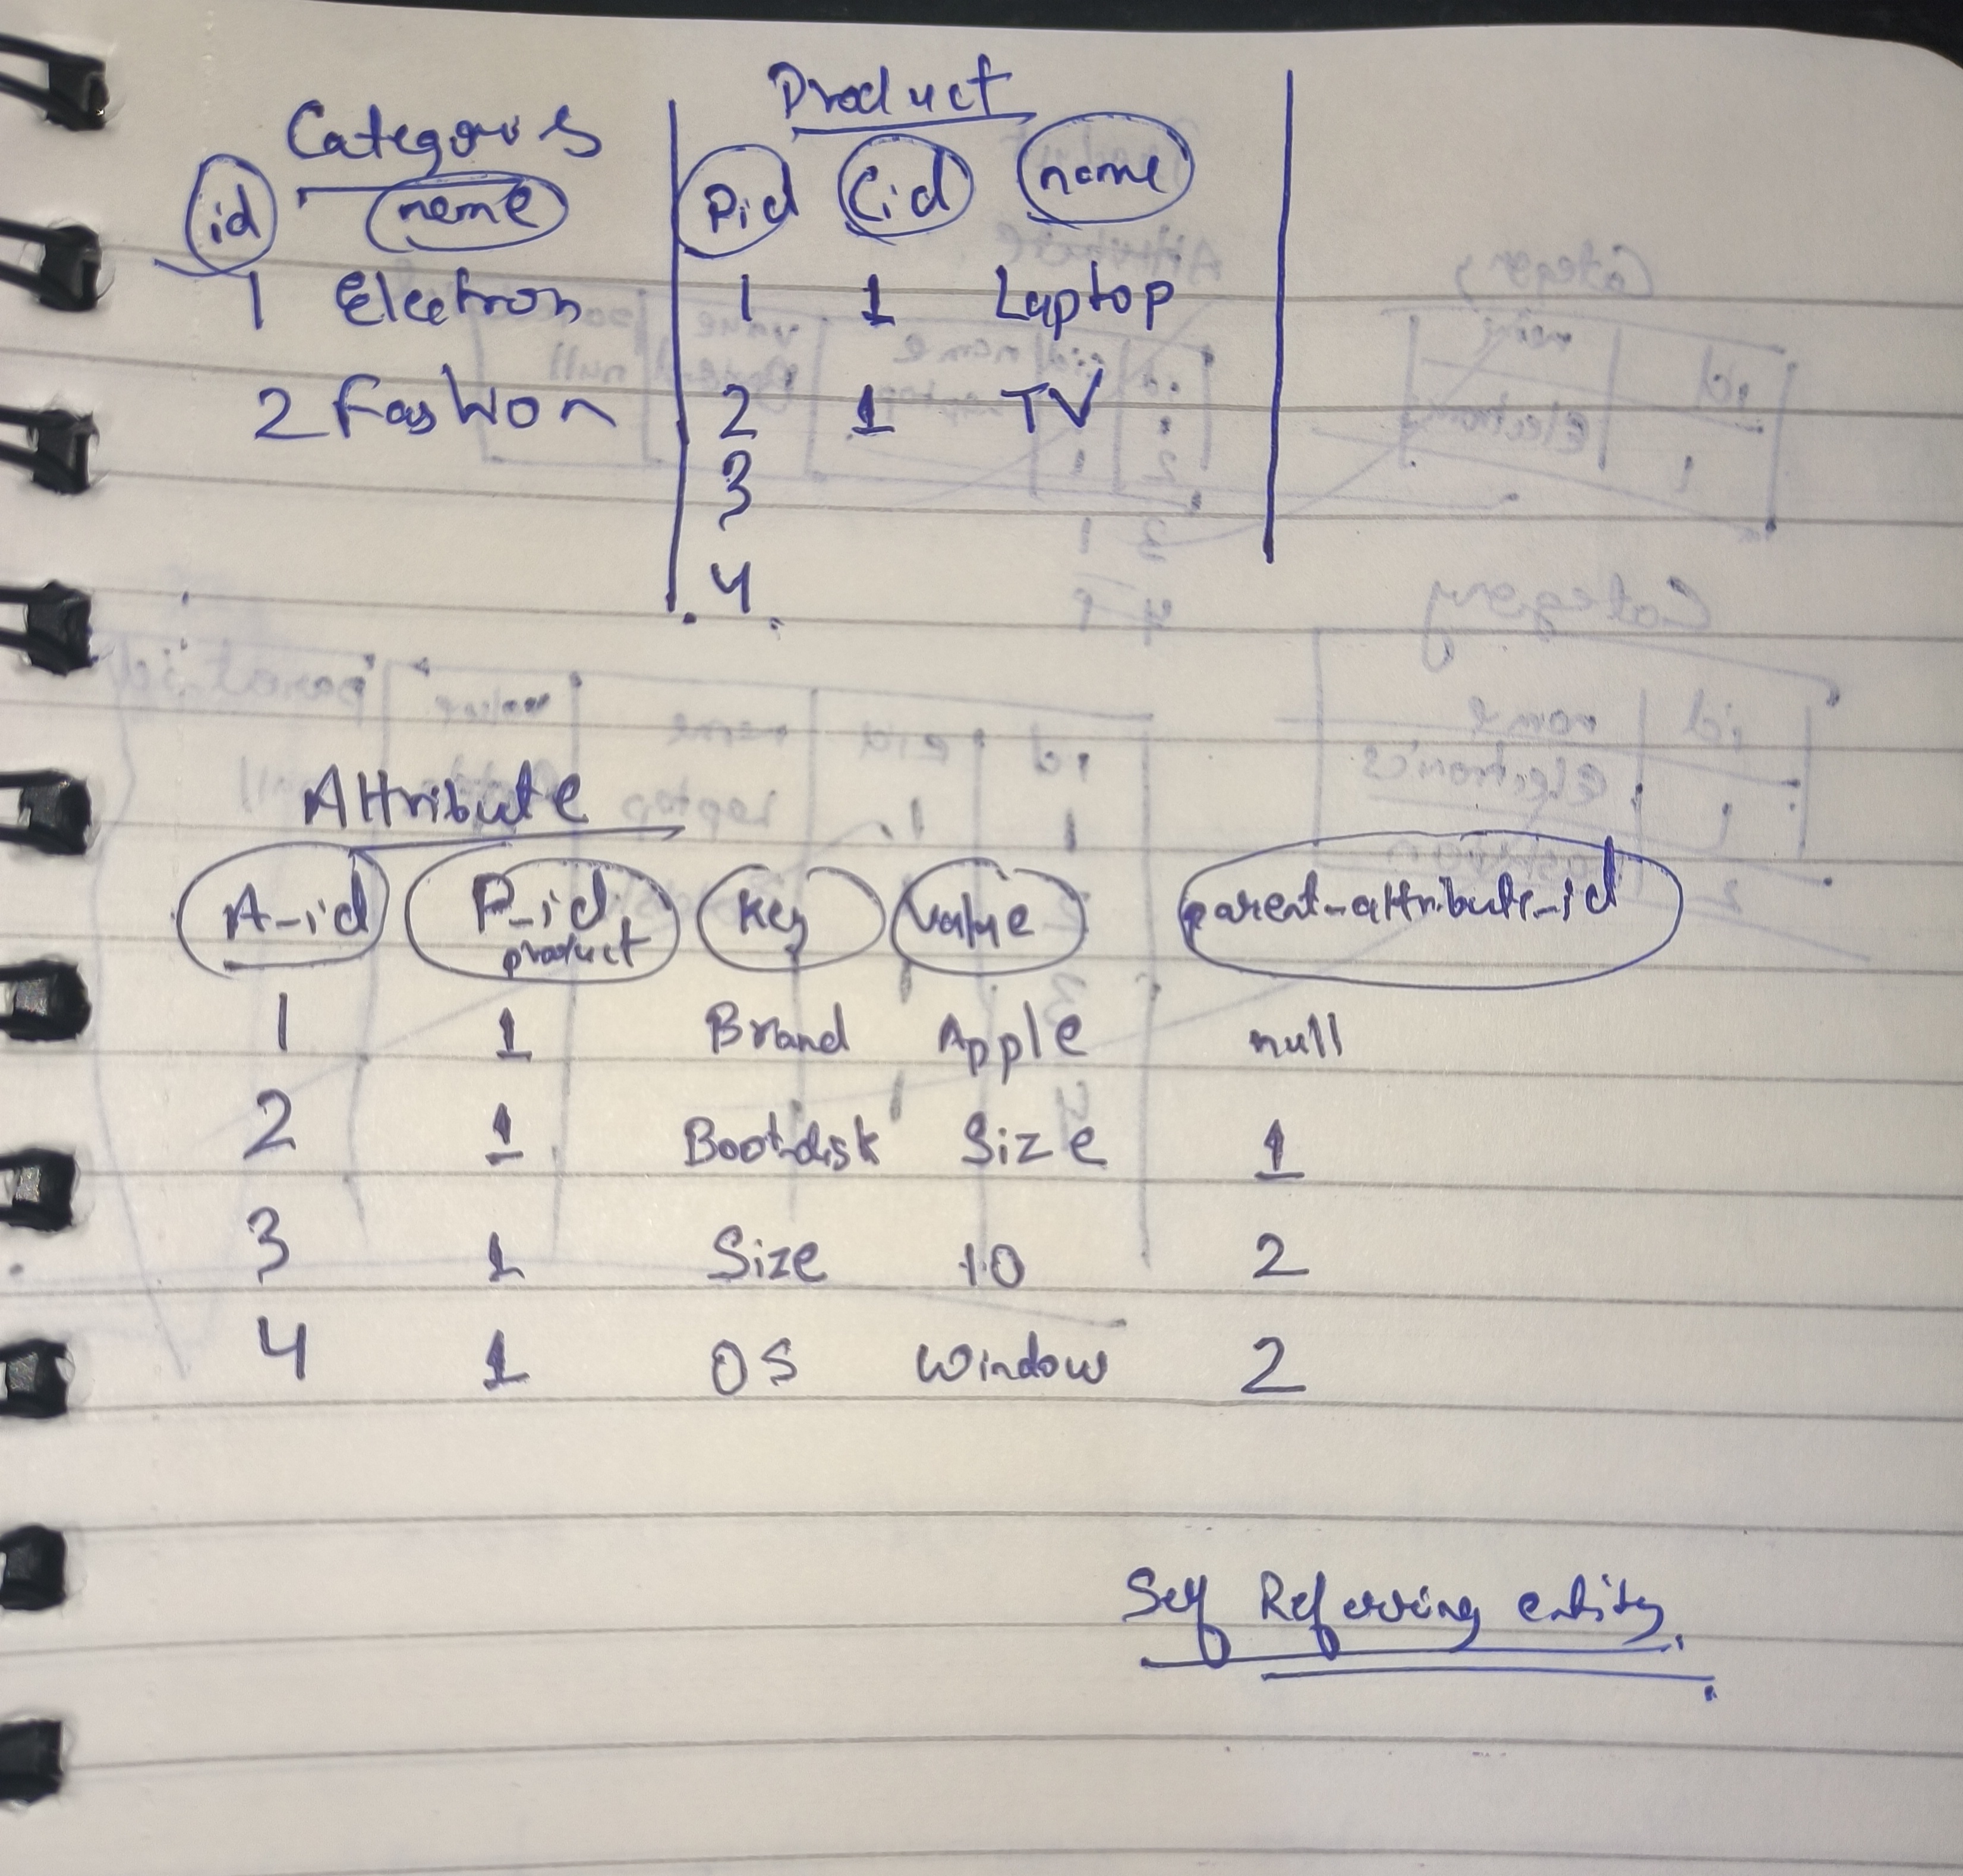 Categoris
id name
1 Electron
2 Fashion
Product
Pid Cid name
1 1 Laptop
2 1 TV
3
4
Attribute
A-id P-id product Key value parent-attribute-id
1 1 Brand Apple null
2 1 Bootdisk Size 1
3 1 Size 10 2
4 1 OS Window 2
Self Referring entity.